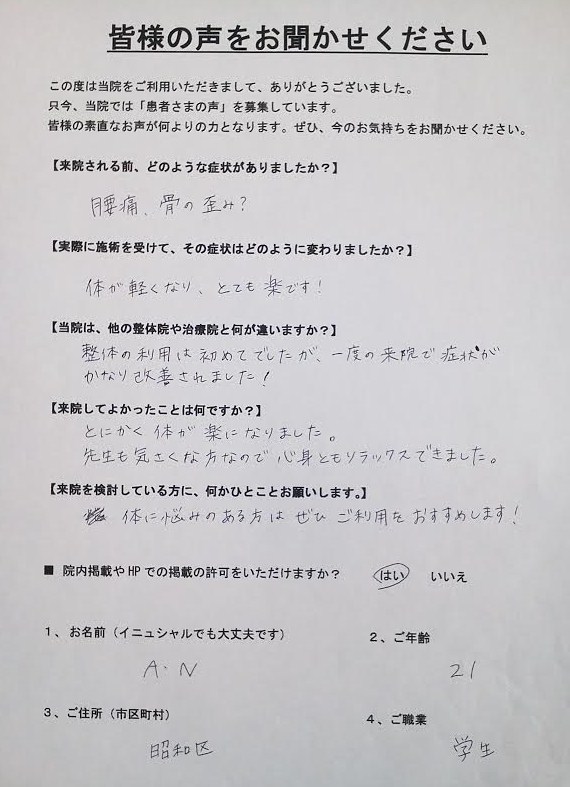 皆様の声をお聞かせください
この度は当院をご利用いただきまして、ありがとうございました。
只今、当院では「患者さまの声」を募集しています。
皆様の素直なお声が何よりの力となります。ぜひ、今のお気持ちをお聞かせください。
【来院される前、どのような症状がありましたか？】
腰痛、骨の歪み？
【実際に施術を受けて、その症状はどのように変わりましたか？】
体が軽くなり、とても楽です！
【当院は、他の整体院や治療院と何が違いますか？】
整体の利用は初めてでしたが、一度の来院で症状が
かなり改善されました！
【来院してよかったことは何ですか？】
とにかく体が楽になりました。
先生も気さくな方なので心身ともリラックスできました。
【来院を検討している方に、何かひとことお願いします。】
体に悩みのある方はぜひご利用をおすすめします！
■ 院内掲載やHPでの掲載の許可をいただけますか？ はい いいえ
1、お名前（イニュシャルでも大丈夫です） 2、ご年齢
A・N 21
3、ご住所（市区町村） 4、ご職業
昭和区 学生